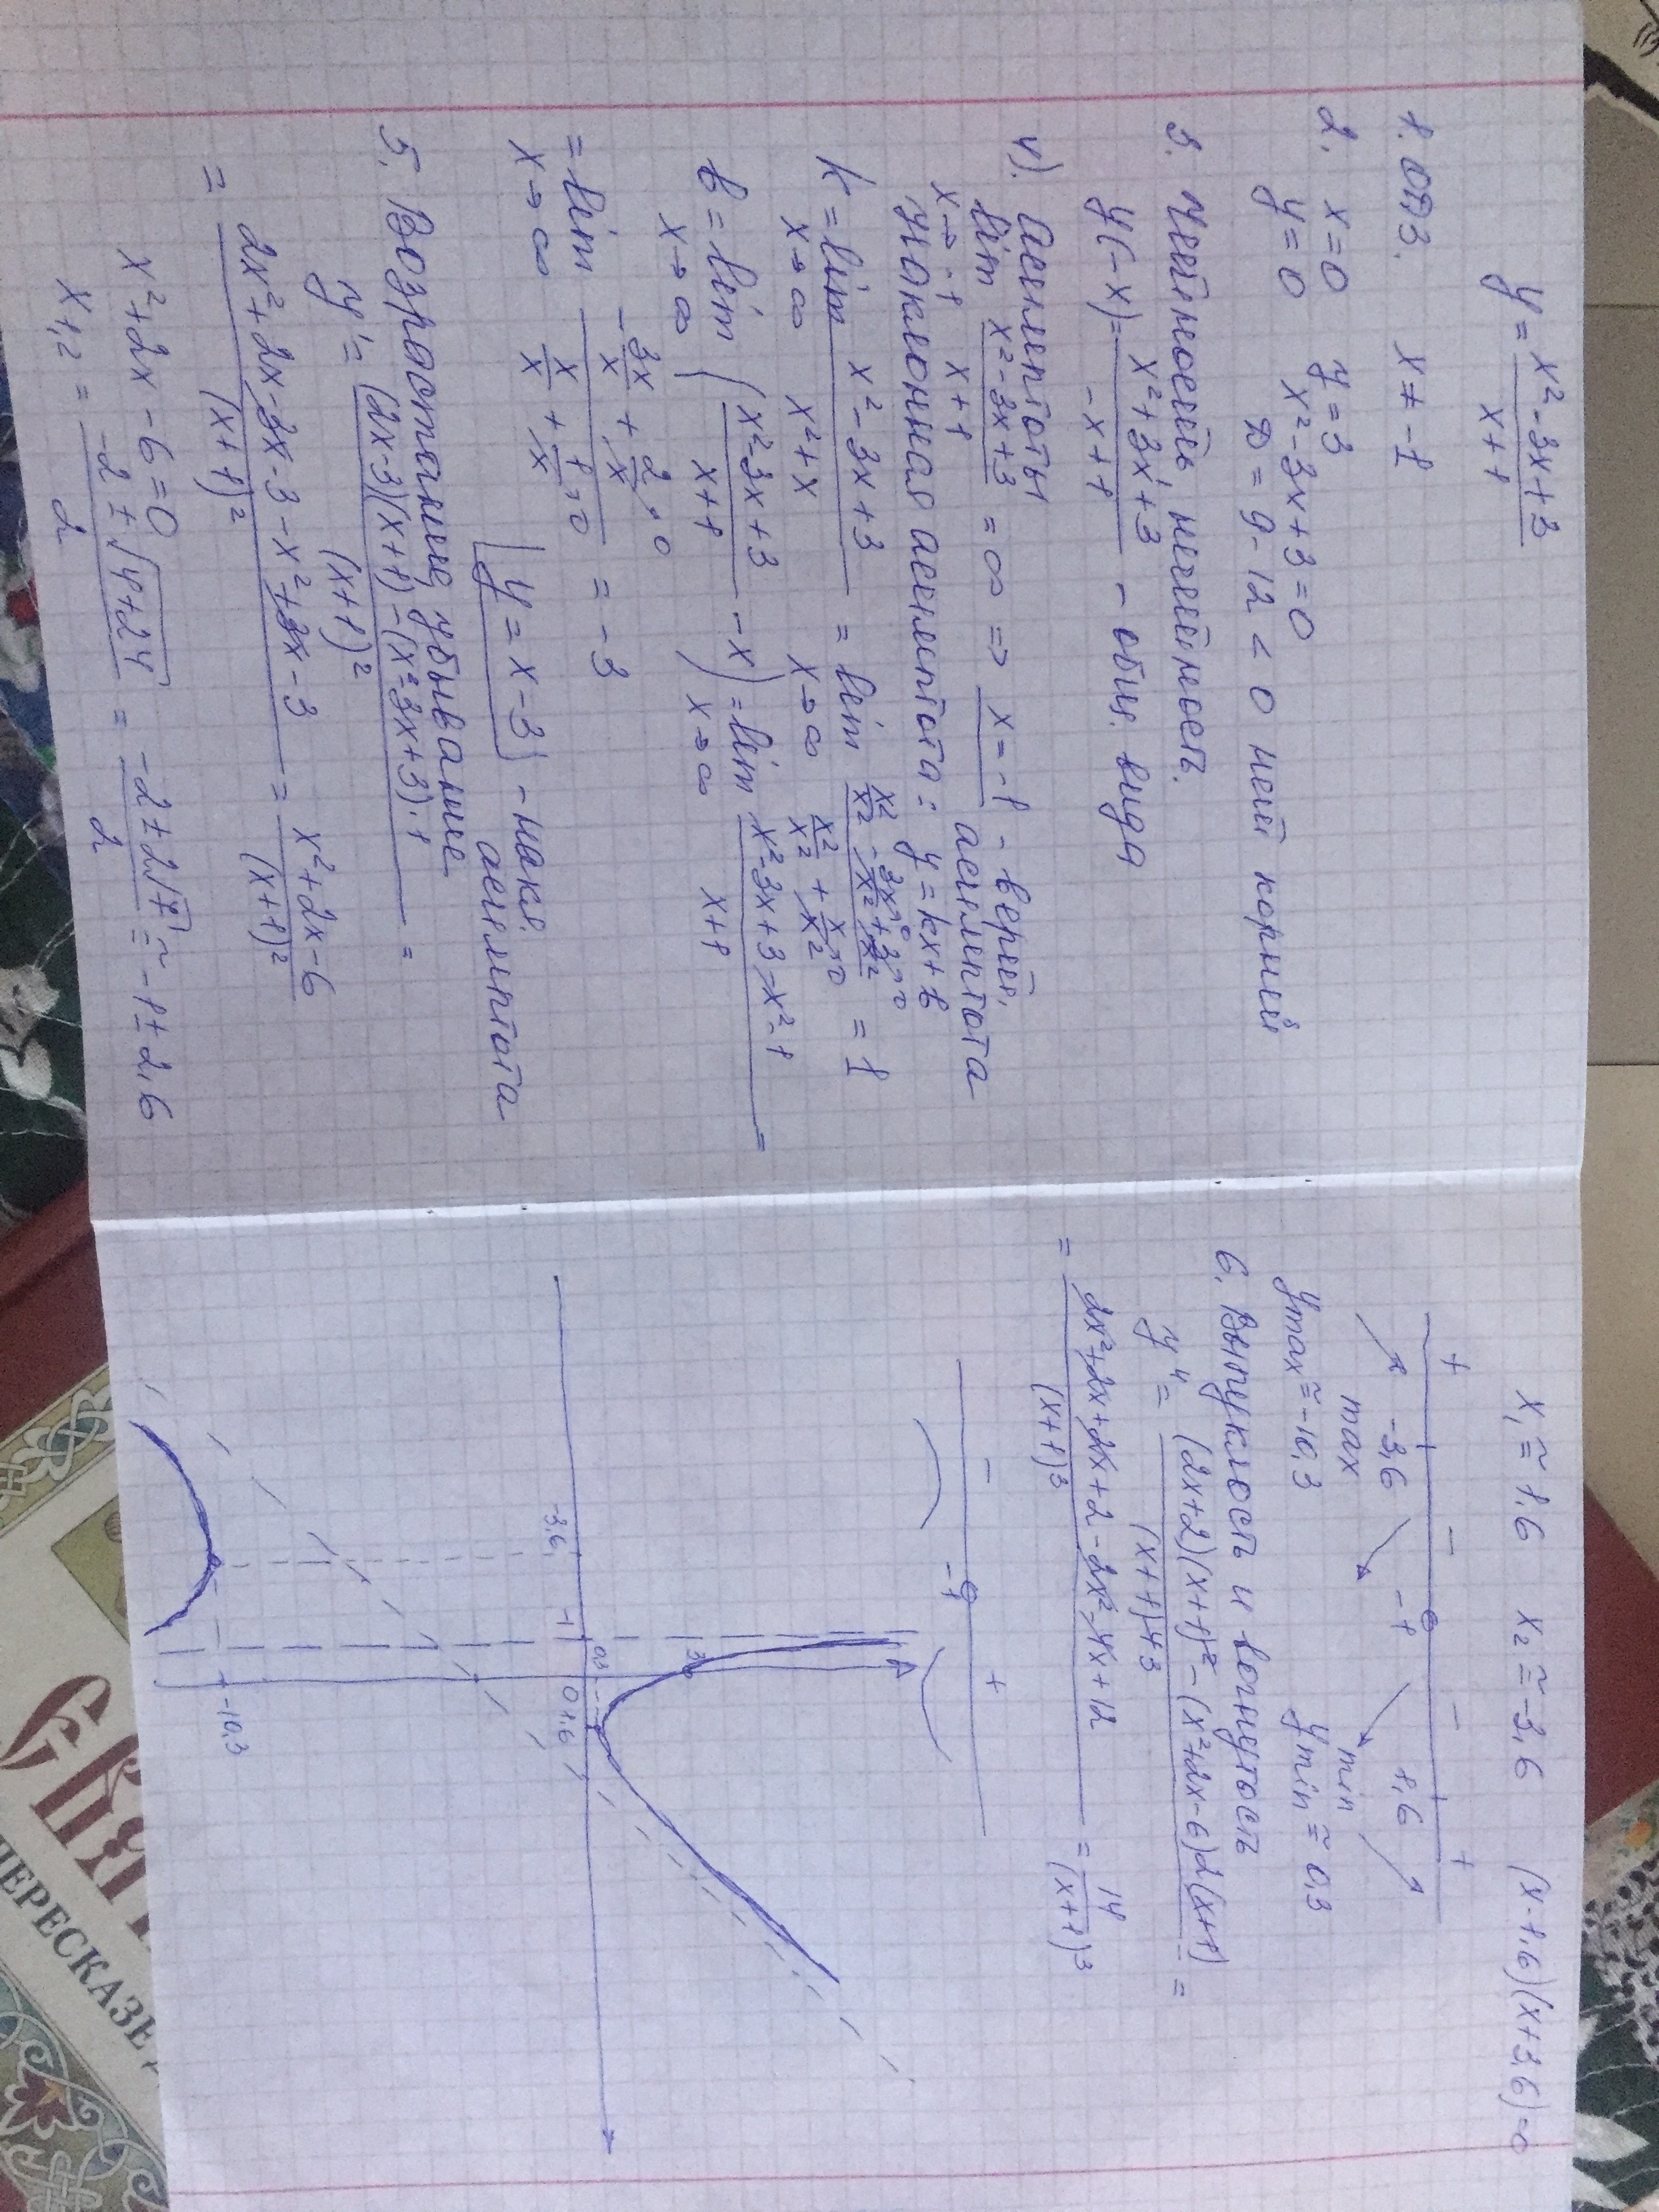 y = (x² - 3x + 3)/(x + 1)
1. ОДЗ. x ≠ -1
2. x = 0 y = 3
y = 0 x² - 3x + 3 = 0
D = 9 - 12 < 0 нет корней
3. Четность, нечетность.
y(-x) = (x² + 3x + 3)/(-x + 1) - общ. вида
4). Асимптоты
lim x→-1 (x² - 3x + 3)/(x + 1) = ∞ => x = -1 - верт. асимптота
Наклонная асимптота: y = kx + b
k = lim x→∞ (x² - 3x + 3)/(x² + x) = lim x→∞ (x²/x² - 3x/x²→0 + 3/x²→0)/(x²/x² + x/x²→0) = 1
b = lim x→∞ ((x² - 3x + 3)/(x + 1) - x) = lim x→∞ (x² - 3x + 3 - x² - 1)/(x + 1) =
= lim x→∞ (-3x/x + 2/x→0)/(x/x + 1/x→0) = -3
y = x - 3 - накл. асимптота
5. Возрастание, убывание
y' = ((2x - 3)(x + 1) - (x² - 3x + 3)·1)/(x + 1)² =
= (2x² + 2x - 3x - 3 - x² + 3x - 3)/(x + 1)² = (x² + 2x - 6)/(x + 1)²
x² + 2x - 6 = 0
x1,2 = (-2 ± √(4 + 24))/2 = (-2 ± 2√7)/2 ≅ -1 ± 2,6
x₁ ≅ 1,6 x₂ ≅ -3,6 (x - 1,6)(x + 3,6) = 0
+ - - +
-3,6 -1 1,6
max min
ymax ≅ -10,3 ymin ≅ 0,3
6. Выпуклость и вогнутость
y'' = ((2x + 2)(x + 1)² - (x² + 2x - 6)2(x + 1))/(x + 1)⁴ ³ =
= (2x² + 2x + 2x + 2 - 2x² - 4x + 12)/(x + 1)³ = 14/(x + 1)³
- +
-1
3
0,3
-3,6 -1 0 1,6
-10,3
ПЕРЕСКАЗЕ